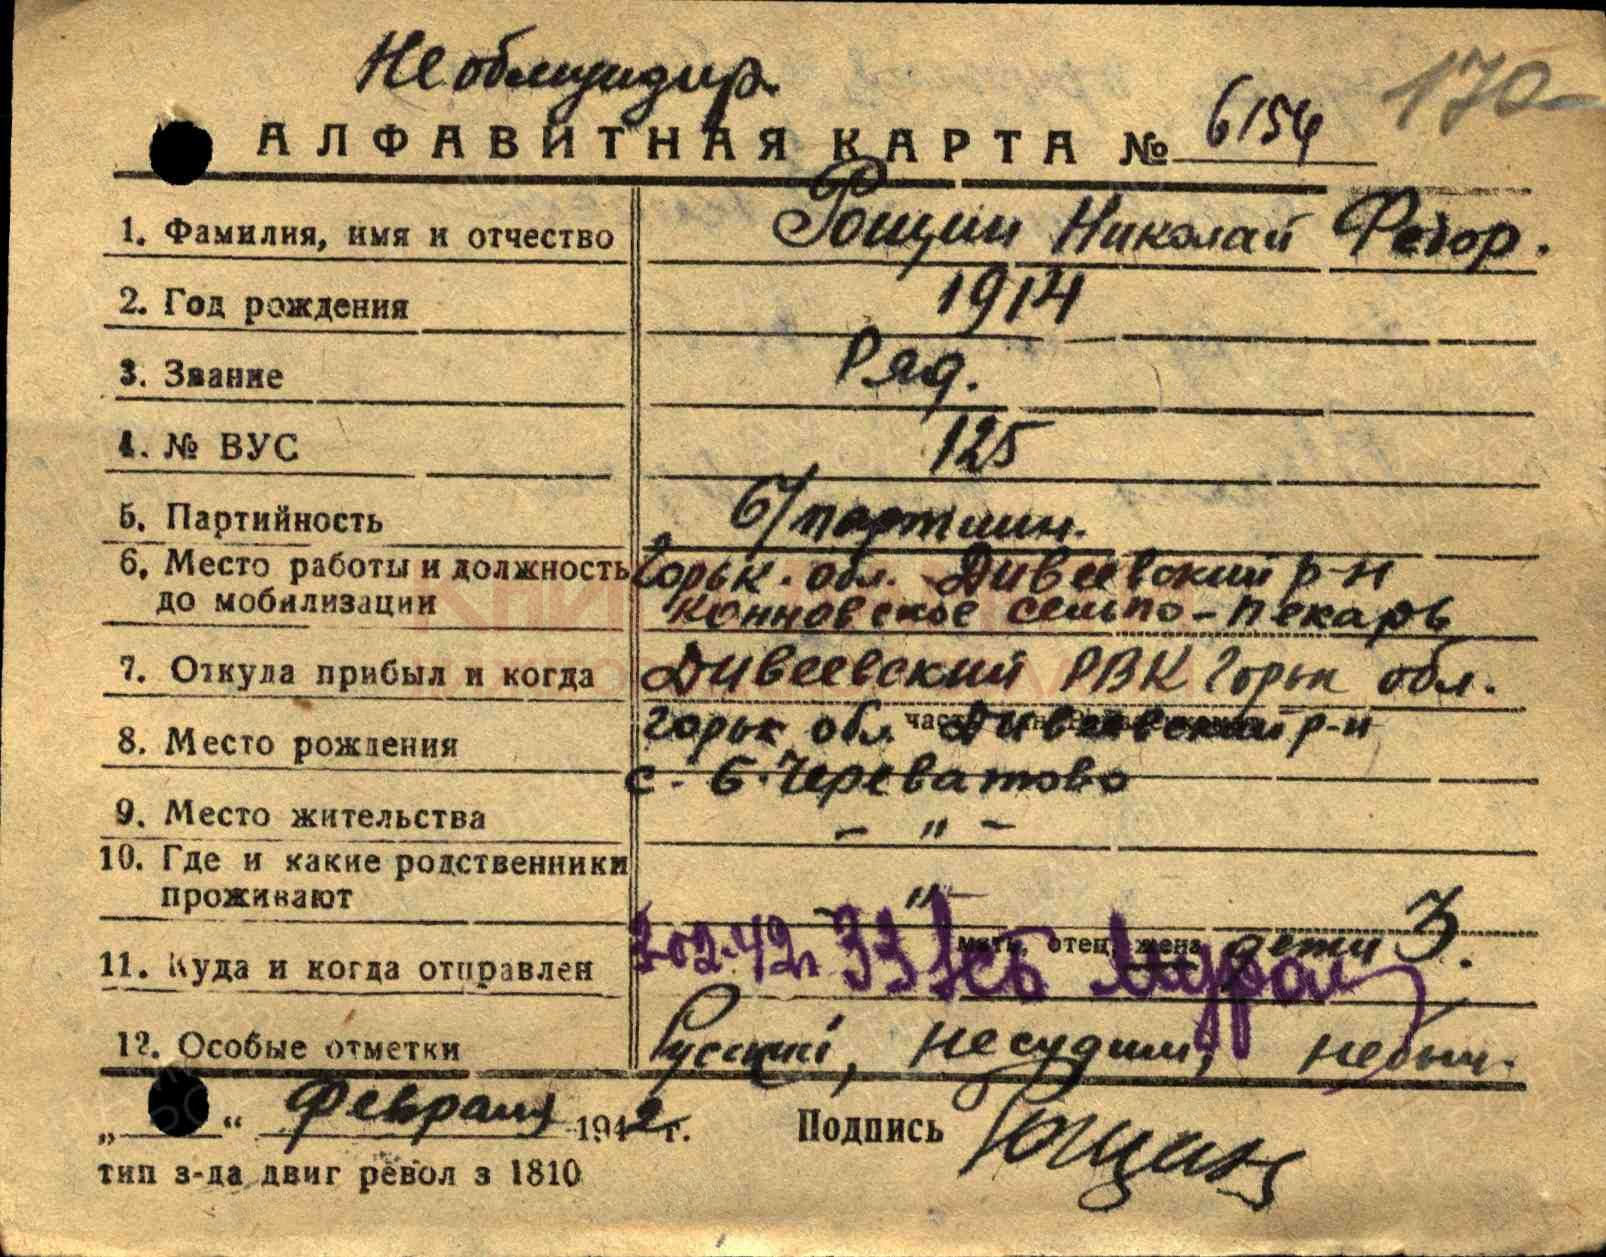 Необмундир.
170
АЛФАВИТНАЯ КАРТА № 6154
1. Фамилия, имя и отчество Рощин Николай Федор.
2. Год рождения 1914
3. Звание Ряд.
4. № ВУС 125
5. Партийность б/партийн.
6. Место работы и должность Горьк. обл. Дивеевский р-н
до мобилизации Конновское сельпо - пекарь
7. Откуда прибыл и когда Дивеевский РВК Горьк обл.
8. Место рождения Горьк обл. Дивеевский р-н
с. Б. Череватово
9. Место жительства - " -
10. Где и какие родственники
проживают - " -
мать, отец, жена дети 3.
11. Куда и когда отправлен 3-02-42г 33 Муром
12. Особые отметки Русский, несудим,
„ “ февраля 1942 г. Подпись Рощин
тип з-да двиг револ з 1810